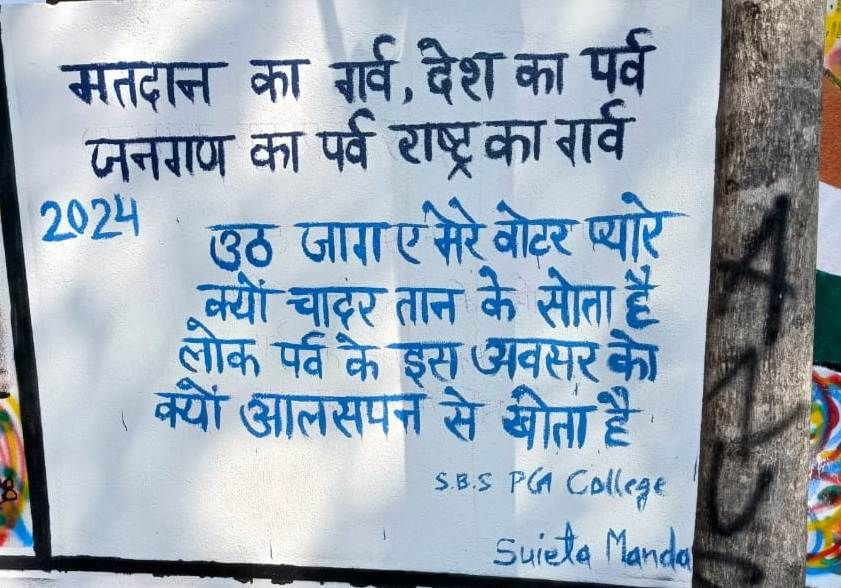 मतदान का गर्व, देश का पर्व
जनगण का पर्व राष्ट्र का गर्व
2024
उठ जाग ए मेरे वोटर प्यारे
क्यों चादर तान के सोता है
लोक पर्व के इस अवसर को
क्यों आलसपन से खोता है
S.B.S PG College
Sujeta Manda